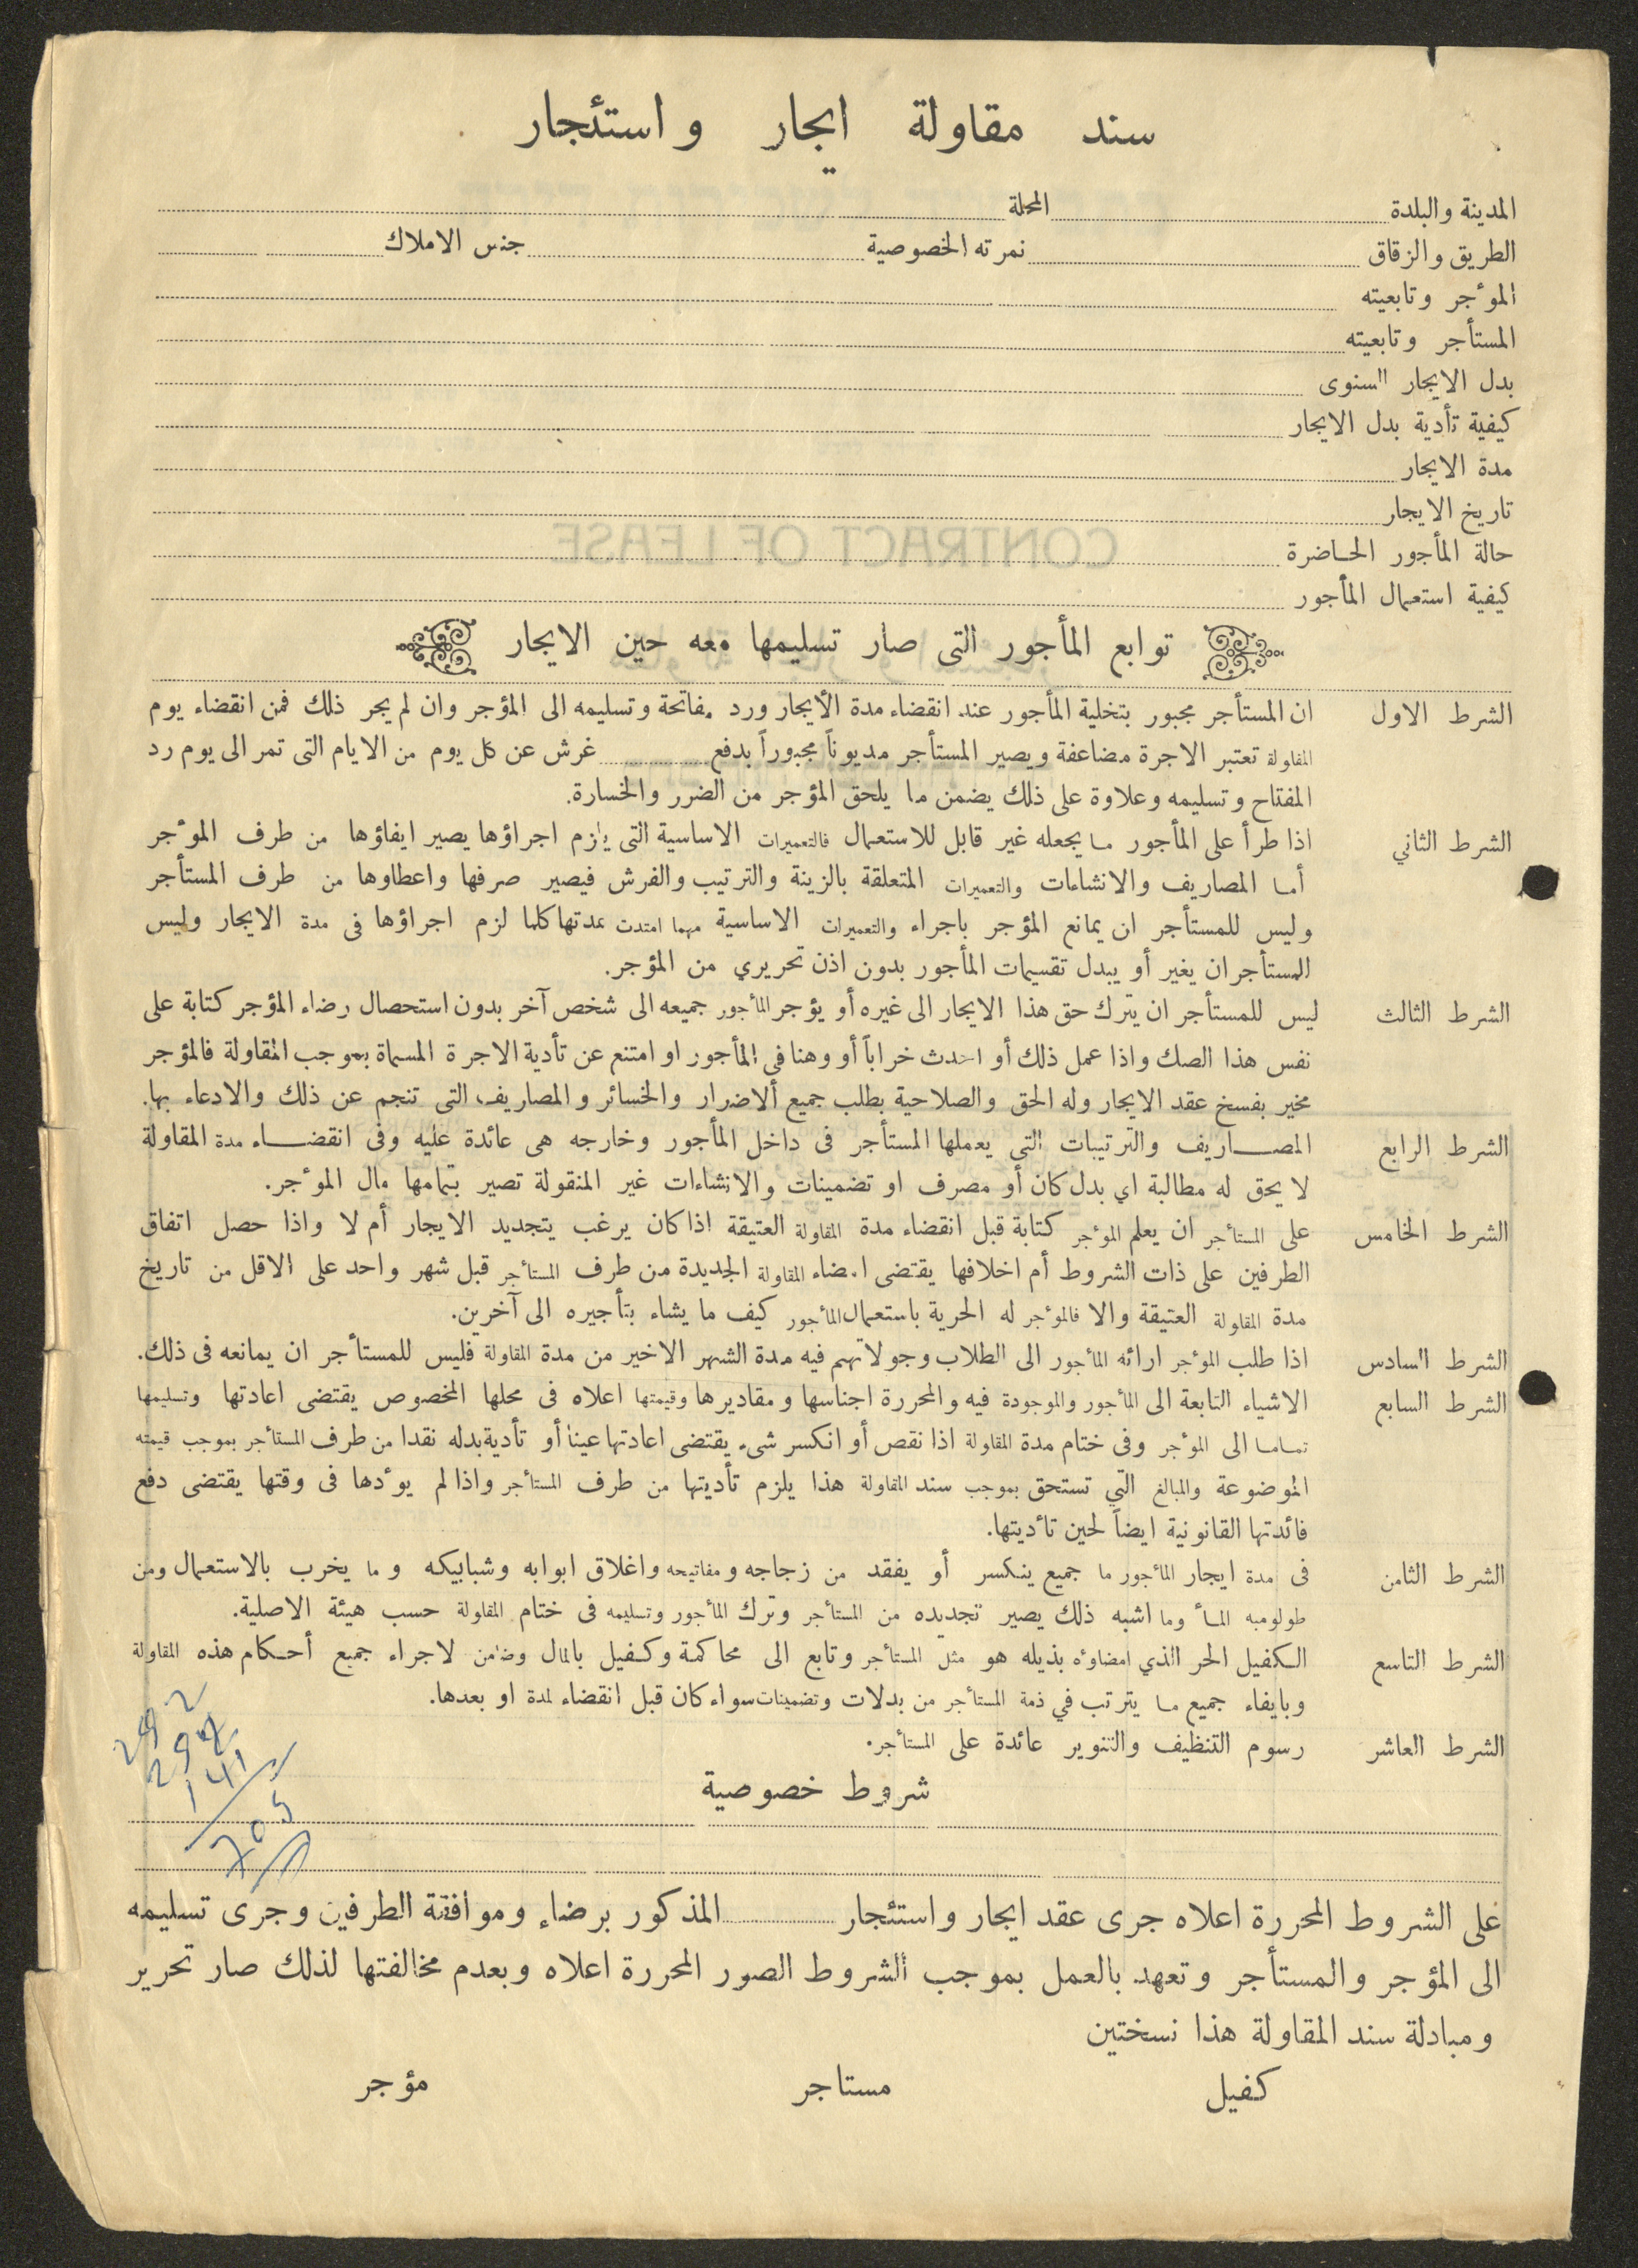 سند مقاولة ايجار واستئجار
المدينة والبلدة المحلة
الطريق والزقاق نمرته الخصوصية جنس الاملاك
المؤجر وتابعيته
المستأجر وتابعيته
بدل الايجار السنوى
كيفية تأدية بدل الايجار
مدة الايجار
تاريخ الايجار
CONTRACT OF LEASE
حالة المأجور الحاضرة
كيفية استعمال المأجور
توابع المأجور التى صار تسليمها معه حين الايجار
الشرط الاول ان المستأجر مجبور بتخلية المأجور عند انقضاء مدة الأيجار ورد مفاتحة وتسليمه الى المؤجر وان لم يجر ذلك فمن انقضاء يوم
المقاولة تعتبر الاجرة مضاعفة ويصير المستأجر مديوناً مجبوراً بدفع غرش عن كل يوم من الايام التى تمر الى يوم رد
المفتاح وتسليمه وعلاوة على ذلك يضمن ما يلحق المؤجر من الضرر والخسارة.
الشرط الثاني اذا طرأ على المأجور ما يجعله غير قابل للاستعمال فالتعميرات الاساسية التى يلزم اجراؤها يصير ايفاؤها من طرف المؤجر
أما المصاريف والانشاءات والتعميرات المتعلقة بالزينة والترتيب والفرش فيصير صرفها واعطاوها من طرف المستأجر
وليس للمستأجر ان يمانع المؤجر باجراء والتعميرات الاساسية مهما امتدت عمدتها كلما لزم اجراؤها فى مدة الايجار وليس
المستأجر ان يغير أو يبدل تقسيمات المأجور بدون اذن تحريري من المؤجر.
الشرط الثالث ليس للمستأجر ان يترك حق هذا الايجار الى غيره أو يؤجر المأجور جميعه الى شخص آخر بدون استحصال رضاء المؤجر كتابة على
نفس هذا الصك واذا عمل ذلك أو احدث خراباً أو وهنا في المأجور او امتنع عن تأدية الاجرة المسماة بموجب المقاولة فالمؤجر
مخير بفسخ عقد الايجار وله الحق والصلاحية بطلب جميع ألاضرار والخسائر والمصاريف التى تنجم عن ذلك والادعاء بها.
الشرط الرابع المصاريف والترتيبات التى يعملها المستأجر فى داخل المأجور وخارجه هى عائدة عليه وفى انقضاء مدة المقاولة
لا يحق له مطالبة اي بدل كان أو مصرف او تضمينات والانشاءات غير المنقولة تصير بتمامها مال المؤجر.
الشرط الخامس على المستأجر ان يعلم المؤجر كتابة قبل انقضاء مدة المقاولة العتيقة اذا كان يرغب يتجديد الايجار أم لا واذا حصل اتفاق
الطرفين على ذات الشروط أم اخلافها يقتضى امضاء المقاولة الجديدة من طرف المستأجر قبل شهر واحد على الاقل من تاريخ
مدة المقاولة العتيقة والا فالمؤجر له الحرية باستعمال المأجور كيف ما يشاء بتأجيره الى آخرين.
الشرط السادس اذا طلب المؤجر ارائه المأجور الى الطلاب وجولاتهم فيه مدة الشهر الاخير من مدة المقاولة فليس للمستأجر ان يمانعه فى ذلك.
الشرط السابع الاشياء التابعة الى المأجور والموجودة فيه والمحررة اجناسها ومقاديرها وقيمتها اعلاه فى محلها المخصوص يقتضى اعادتها وتسليمها
تماما الى المؤجر وفى ختام مدة المقاولة اذا نقص أو انكسر شىء يقتضى اعادتها عيناً أو تأدية بدله نقدا من طرف المستأجر بموجب قيمته
الموضوعة والمبالغ التي تستحق بموجب سند المقاولة هذا يلزم تأديتها من طرف المستأجر واذا لم يؤدها فى وقتها يقتضى دفع
فائدتها القانونية ايضاً لحين تأديتها.
الشرط الثامن فى مدة ايجار المأجور ما جميع ينكسر أو يفقد من زجاجه ومفاتيحه واغلاق ابوابه وشبابيكه وما يخرب بالاستعمال ومن
طولومبه الماْ وما اشبه ذلك يصير تجديده من المستأجر وترك المأجور وتسليمه فى ختام المقاولة حسب هيئة الاصلية.
الشرط التاسع الكفيل الحر الذي امضاؤه بذيله هو مثل المستأجر وتابع الى محاكمة وكفيل بالمال وضامن لاجراء جميع أحكام هذه المقاولة
وبايفاء جميع ما يترتب في ذمة المستأجر من بدلات وتضمينات سواء كان قبل انقضاء لمدة او بعدها.
الشرط العاشر رسوم التنظيف والتنوير عائدة على المستأجر.
شروط خصوصية
141
705
على الشروط المحررة اعلاه جرى عقد ايجار واستئجار المذكور برضاء وموافقة الطرفين وجرى تسليمه
الى المؤجر والمستأجر وتعهد بالعمل بموجب الشروط الصور المحررة اعلاه وبعدم مخالفتها لذلك صار تحرير
ومبادلة سند المقاولة هذا نسختين
كفيل مستاجر مؤجر